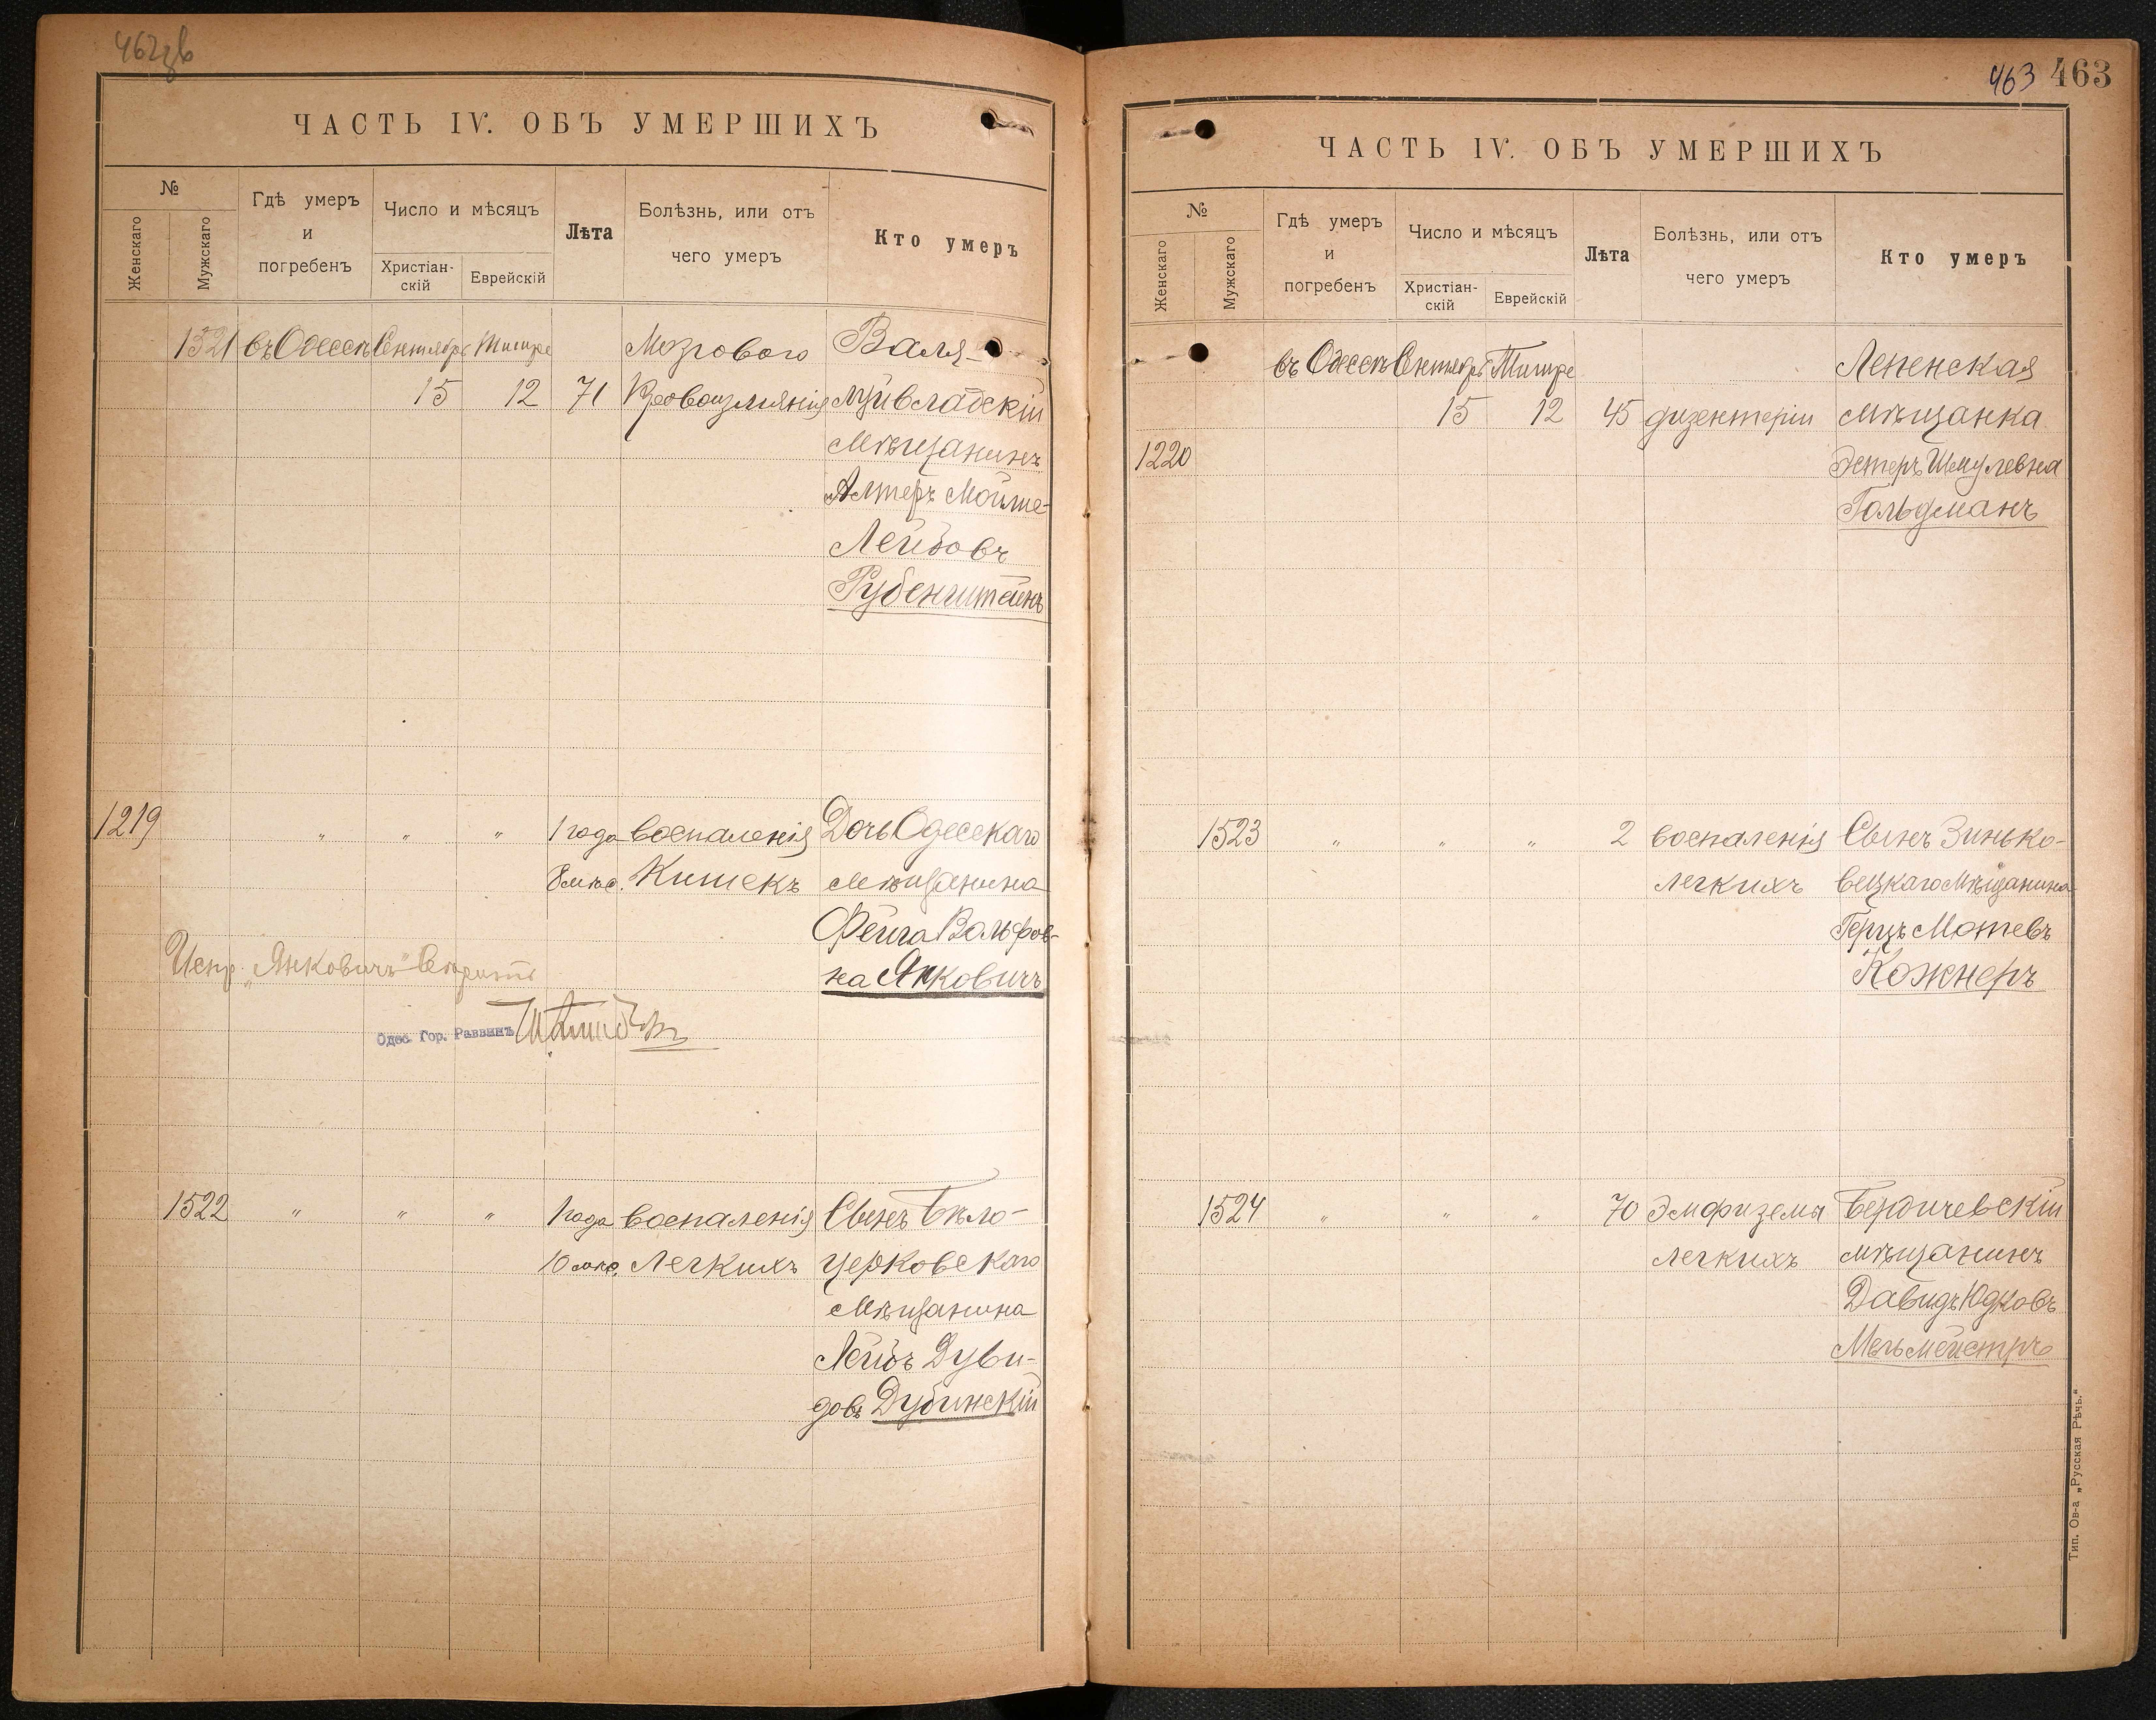 ЧАСТЬ IV. ОБЪ УМЕРШИХЪ
№
Женскаго
Мужскаго
Гдѣ умеръ
и
погребенъ
Число и мѣсяцъ
Христіан-
скій
Еврейскій
Лѣта
Болѣзнь, или отъ
чего умеръ
Кто умеръ
1521 въ Одессѣ Сентябрь Тишре Мозгового Валя-
15 12 71 Кровоизліянія луйвладскій
Мѣщанинъ
Алтеръ Мойше-
Лейбовъ
Рубенштейнъ
1219 " " " 1 года воспаленія Дочь Одесскаго
8 мѣс. Кишекъ мѣщанина
Фейга Вольфов-
на Янкович
Испр. „Янковичъ"
Одес. Гор. Раввинъ
1522 " " " 1 года воспаленія Сынъ Бѣло-
10 мѣс. Легкихъ церковскаго
Мѣщанина
Лейбъ Дуви-
довъ Дубинскій
463 463
ЧАСТЬ IV. ОБЪ УМЕРШИХЪ
№
Женскаго
Мужскаго
Гдѣ умеръ
и
погребенъ
Число и мѣсяцъ
Христіан-
скій
Еврейскій
Лѣта
Болѣзнь, или отъ
чего умеръ
Кто умеръ
въ Одессѣ Сентябрь Тишре Лепенская
15 12 45 дизентеріи мѣщанка
1220 Эстеръ Шмулевна
Гольдманъ
1523 " " " 2 воспаленія Сынъ Зинько-
легкихъ вецкаго Мѣщанина
Герцъ Мотевъ
Кожнеръ
1524 " " " 70 Эмфиземы Бердичевскій
легкихъ мѣщанинъ
Давидъ Юдковъ
Мельмейстръ
Тип. Ов-а „Русская Рѣчь."